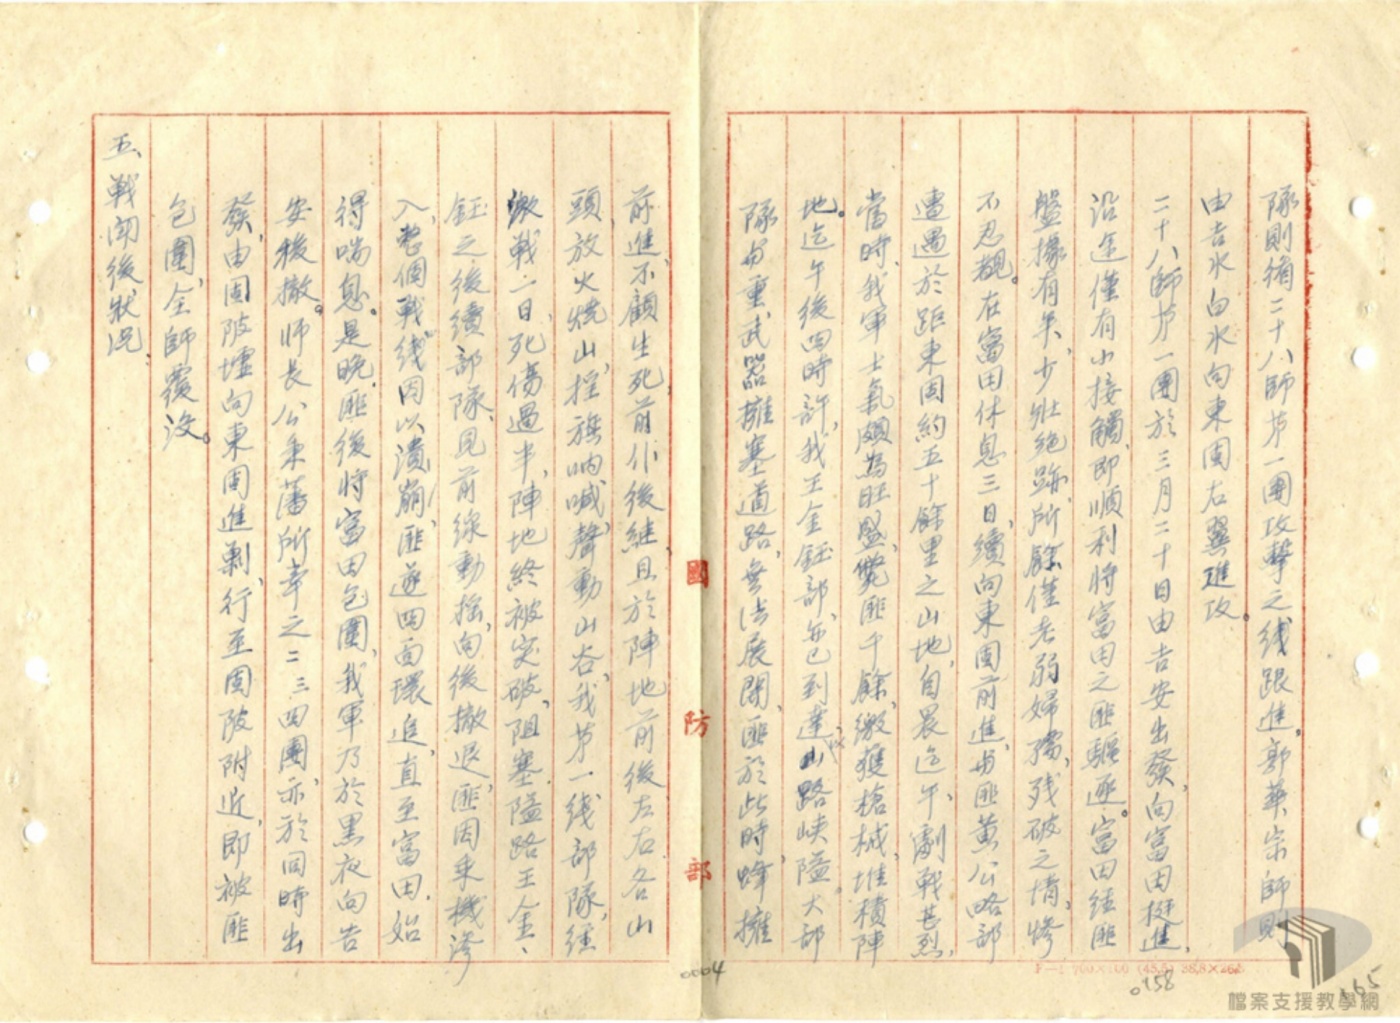 隊則循二十八師第一團攻擊之线跟進、郭華宗師則
由吉水白水向東固右翼進攻。
二十八師第一團於三月二十日由吉安出發、向富田挺進、
沿途僅有小接觸、即順利將富田之匪驅逐。富田經匪
盤據有年、少壯絶跡、所餘僅老弱婦孺、残破之情、慘
不忍覩。在富田休息三日、續向東固前進、與匪黄公略部
遭遇於距東固約五十餘里之山地、自晨迄午、劇戰甚烈、
當時、我軍士氣頗為旺盛、斃匪千餘、繳獲槍械堆積陣
地。迄午後四時許、我王金鈺部、亦已到達山路峽隘、大部
隊與重武器擁塞道路、無法展開、匪於此時蜂擁
前進、不顧生死、前仆後継、且於陣地前後左右各山
頭、放火燒山、搖旗吶喊、聲動山谷、我第一线部隊、經
激戰二日、死傷過半、陣地終被突破、阻塞隘路王金、
鈺之後續部隊、見前線動搖、向後撤退、匪因乘機滲
入、整個戰线因以潰崩、匪遂四面環追、直至富田、始
得喘息。是晚、匪復將富田包圍、我軍乃於黑夜向吉
安後撤。师長公秉藩所率之二三四團、亦於同時出
發、由固陂墟向東固進剿、行至固陂附近、即被匪
包圍、全師覆没。
五、戰鬥後狀况：
國防部
0004
0158
165
F-1 700×100 (45.5) 38.8×26.5
檔案支援教學網